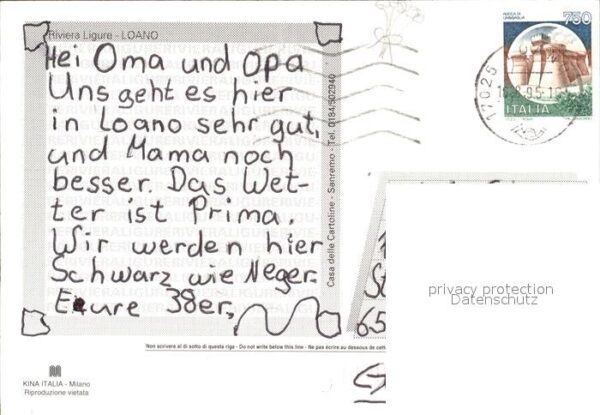 Riviera Ligure - LOANO
Hei Oma und Opa
Uns geht es hier
in Loano sehr gut,
und Mama noch
besser. Das Wet-
ter ist Prima.
Wir werden hier
Schwarz wie Neger.
Eure 38er,
Casa delle Cartoline - Sanremo - Tel. 0184/502940
Non scrivere al di sotto di questa riga - Do not write below this line - Ne pas écrire au dessous de cett
KINA ITALIA - Milano
Riproduzione vietata
ROCCA DI URBISAGLIA
750
ITALIA
17025
privacy protection
Datenschutz
65